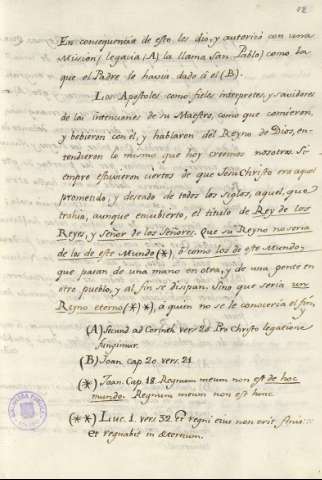 12
En consequencia de esto, les dio, y autorizó con una
Mision, legacia (A) la llama San Pablo) como la
que el Padre le havia dado á él (B).
Los Apostoles como fieles interpretes, y savidores
de las intenciones de su Maestro, como que comieron,
y bebieron con él, y hablaron del Reyno de Dios, en-
tendieron lo mismo que hoy creemos nosotros. Si
empre estuvieron ciertos de que JesuChristo era aquel
prometido, y deseado de todos los siglos, aquel, que
trahia, aunque encubierto, el titulo de Rey de los
Reyes, y Señor de los Señores. Que su Reyno no seria
de los de este Mundo (*) ó como los de este Mundo, y
que pasan de una mano en otra, y de una gente en
otro pueblo, y al fin se disipan. Sino que seria un
Reyno eterno (**), á quien no se le conoceria el fin, y
(A) Secund. ad Corinth. vers. 20. Pro Christo legatione
fungimur.
(B) Joan. cap. 20. vers. 21
(*) Joan. Cap. 18. Regnum meum non est de hoc
mundo. Regnum meum non est hinc
(**) Luc. 1. vers. 32. Et regni eius non erit finis
et regnabit in æternum.